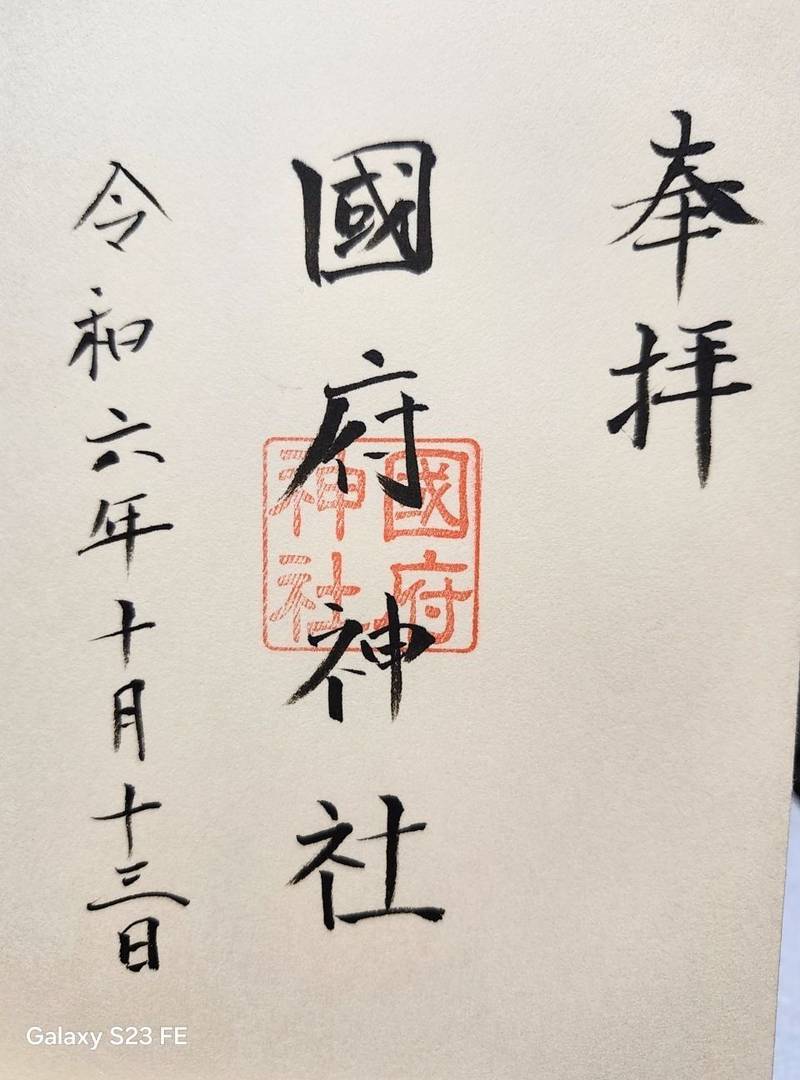 奉拝
國府神社
國府
神社
令和六年十月十三日
Galaxy S23 FE